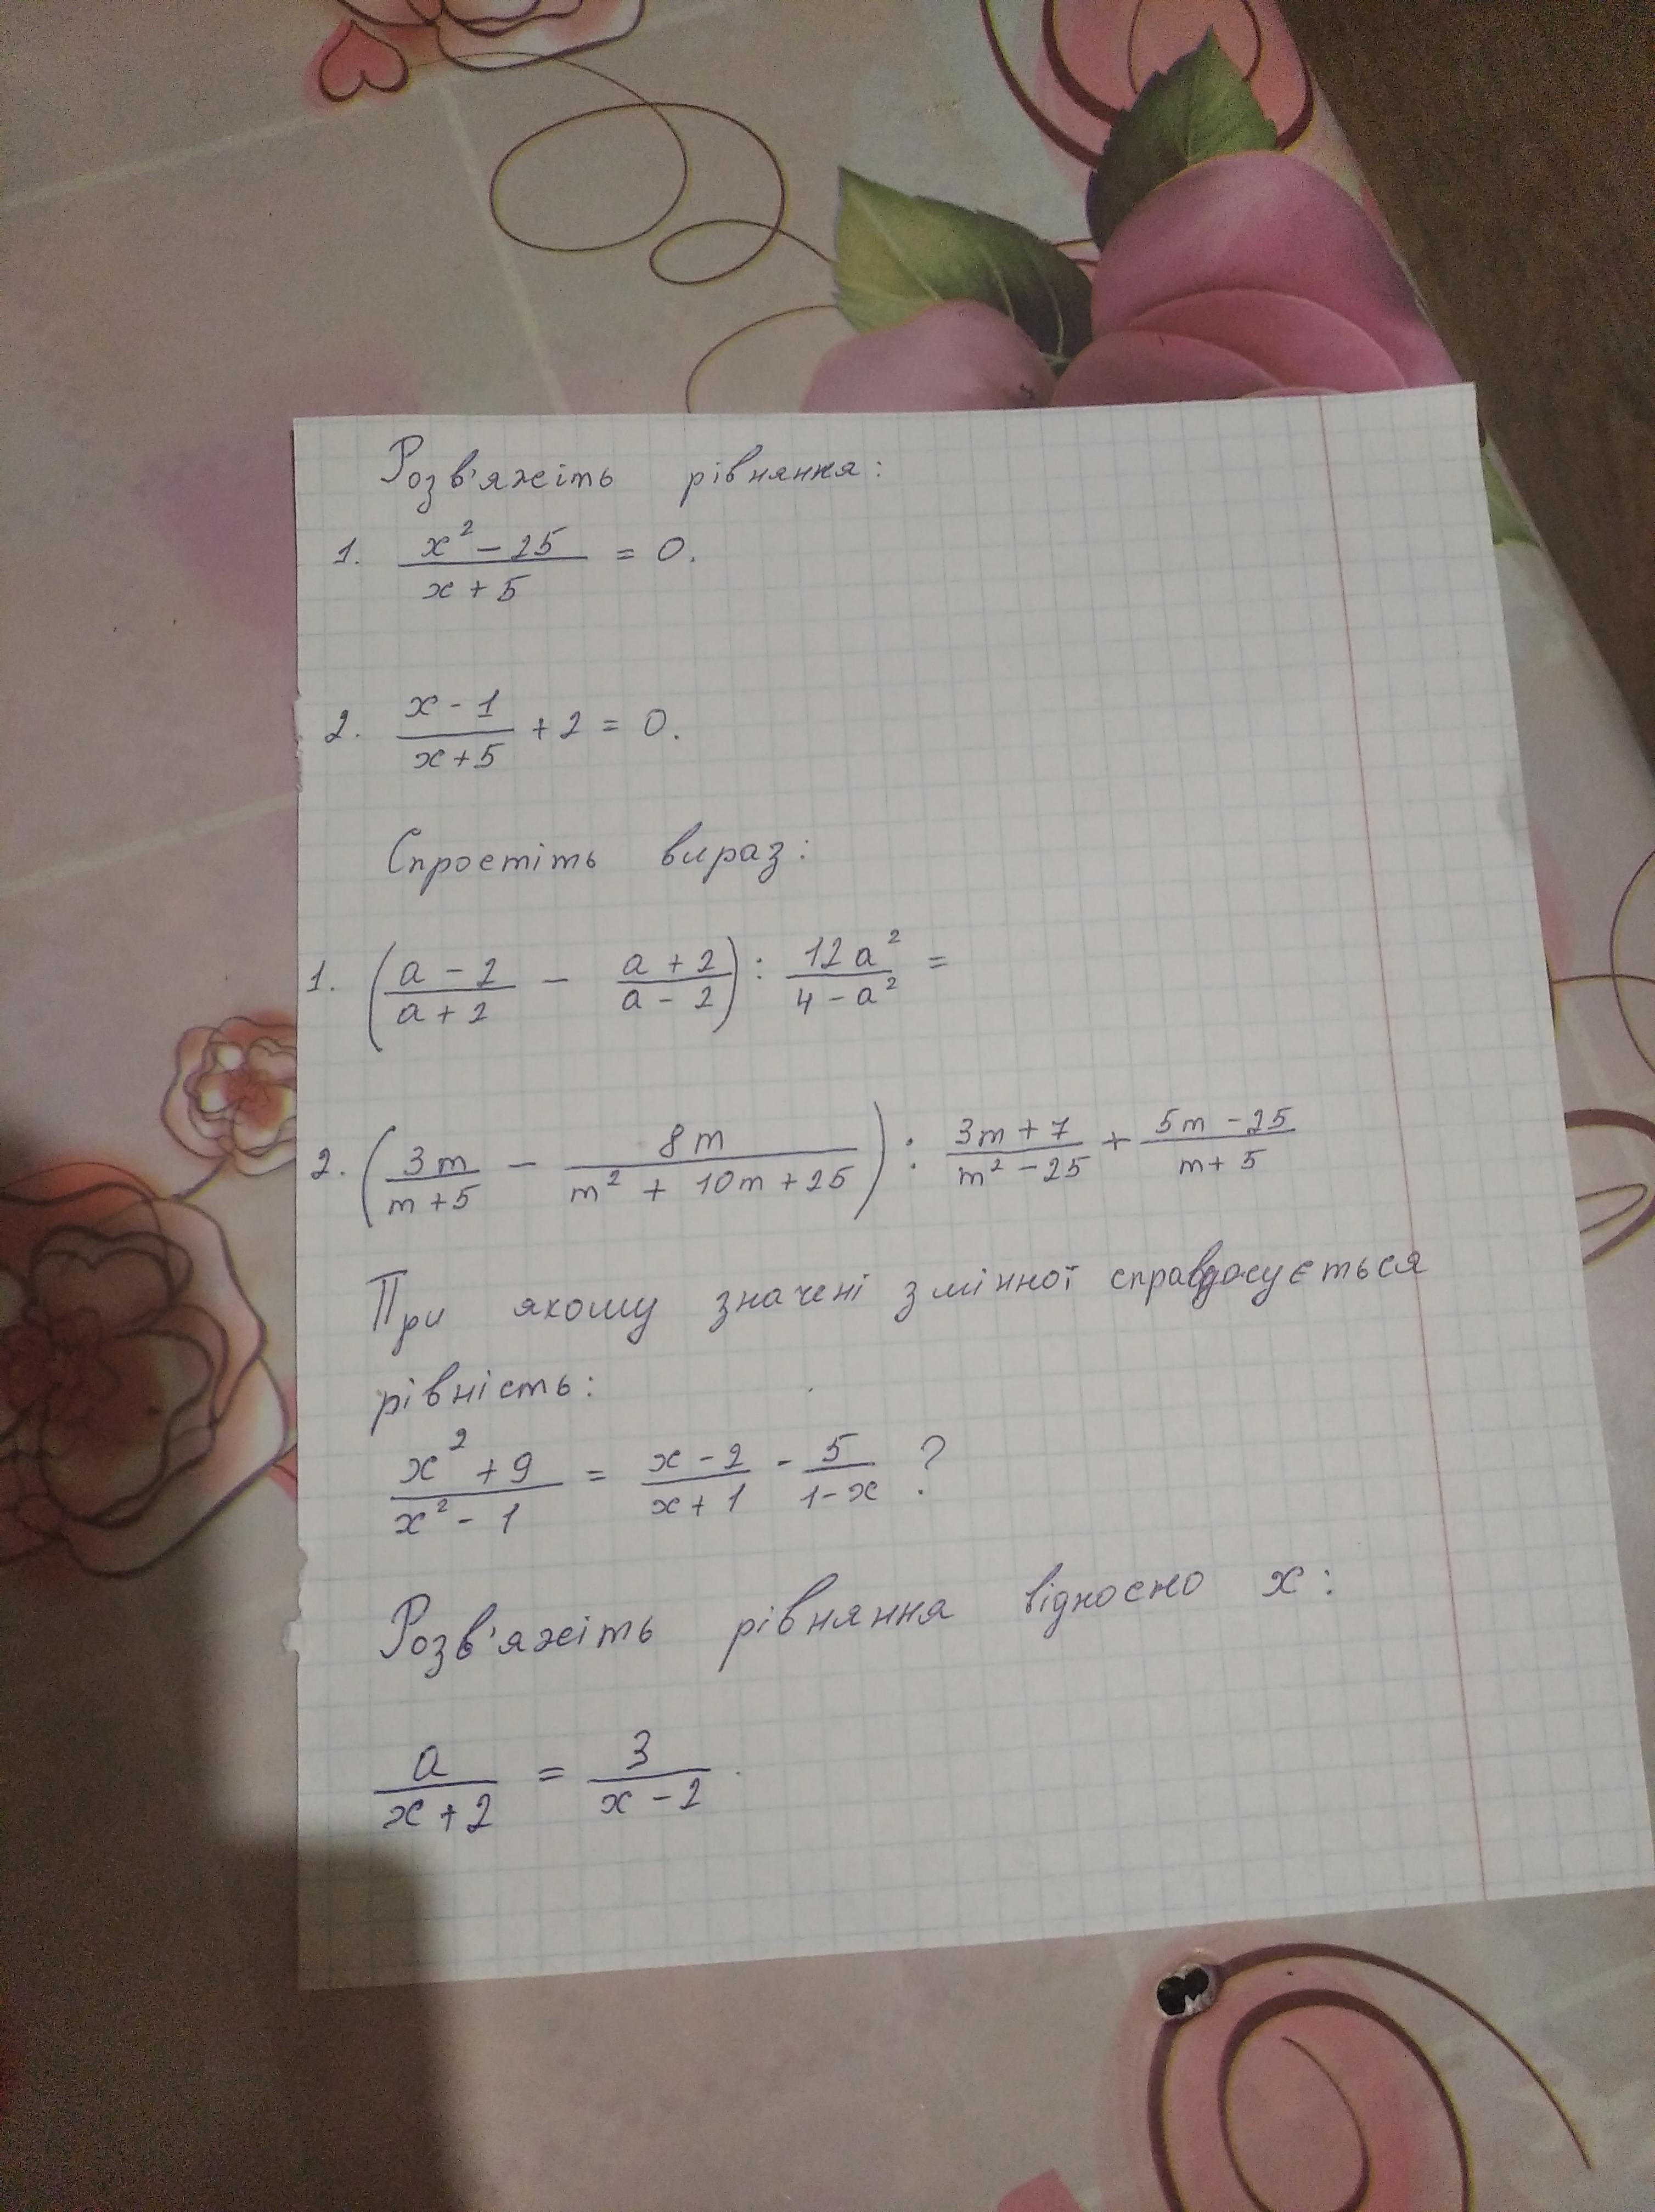 Розв'яжіть рівняння:
1. (x² - 25)/(x + 5) = 0.
2. (x - 1)/(x + 5) + 2 = 0.
Спростіть вираз:
1. ((a - 2)/(a + 2) - (a + 2)/(a - 2)) : (12a²)/(4 - a²) =
2. ((3m)/(m + 5) - (8m)/(m² + 10m + 25)) : (3m + 7)/(m² - 25) + (5m - 25)/(m + 5)
При якому значені змінної справджується
рівність:
(x² + 9)/(x² - 1) = (x - 2)/(x + 1) - 5/(1 - x) ?
Розв'яжіть рівняння відносно x:
a/(x + 2) = 3/(x - 2).